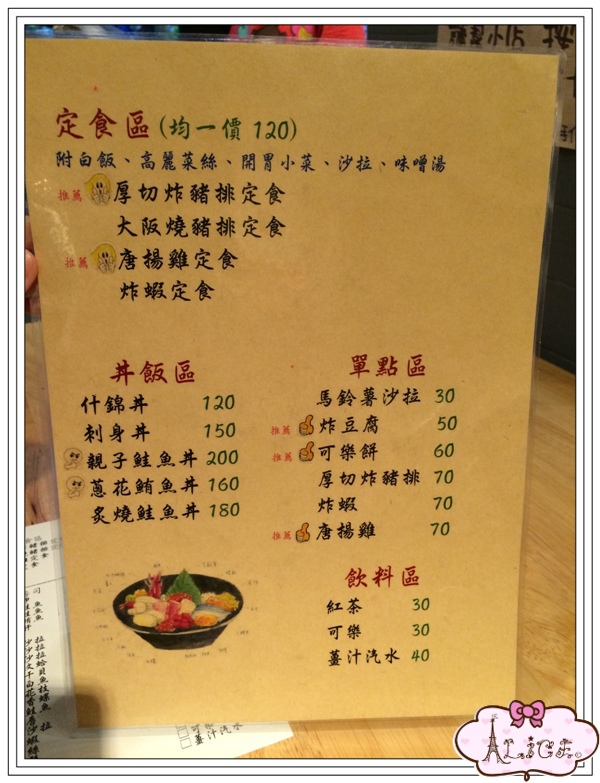 定食區 (均一價 120)
附白飯、高麗菜絲、開胃小菜、沙拉、味噌湯
推薦 厚切炸豬排定食
大阪燒豬排定食
推薦 唐揚雞定食
炸蝦定食
丼飯區
什錦丼 120
刺身丼 150
親子鮭魚丼 200
蔥花鮪魚丼 160
炙燒鮭魚丼 180
單點區
馬鈴薯沙拉 30
推薦 炸豆腐 50
推薦 可樂餅 60
厚切炸豬排 70
炸蝦 70
推薦 唐揚雞 70
飲料區
紅茶 30
可樂 30
薑汁汽水 40
薑汁汽水
ALICE